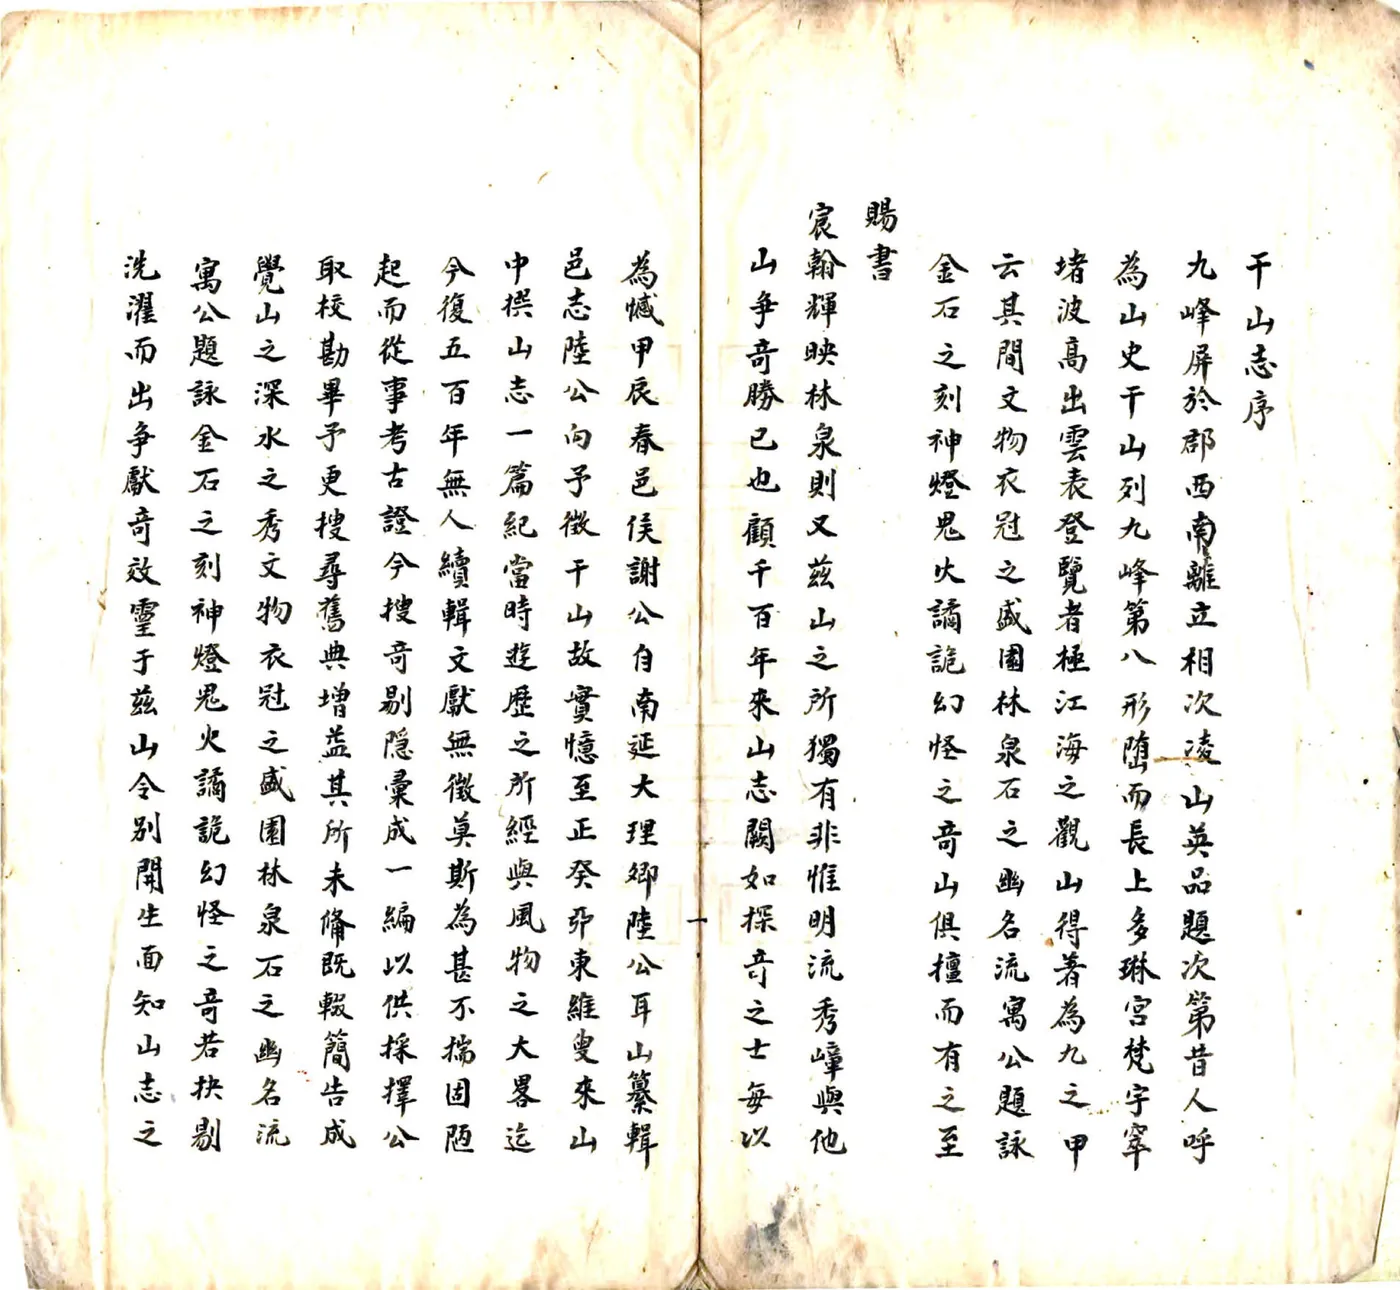 干山志序
九峰屏於郡西南離立相次淩山英品題次第昔人呼
為山史干山列九峰第八形堕而長上多琳宮梵宇窣
堵波髙出雲表登覽者極江海之觀山得著為九之甲
云其間文物衣冠之盛園林泉石之幽名流寓公題詠
金石之刻神燈鬼火譎詭幻怪之竒山俱擅而有之至
賜書
宸翰輝映林泉則又茲山之所獨有非惟明流秀嶂與他
山争竒勝已也顧千百年來山志闕如探竒之士每以
為憾甲辰春邑侯謝公自南延大理卿陸公耳山纂輯
邑志陸公向予徵干山故實憶至正癸夘東維叟來山
中撰山志一篇紀當時遊歷之所經與風物之大畧迄
今復五百年無人續輯文獻無徵莫斯為甚不揣固陋
起而從事考古證今搜竒剔隠彙成一編以供採擇公
取校勘畢予更搜尋舊典增益其所未俻既輟簡告成
覺山之深水之秀文物衣冠之盛園林泉石之幽名流
寓公題詠金石之刻神燈鬼火譎詭幻怪之竒若抉剔
洗濯而出争獻竒效靈于茲山令别開生面知山志之